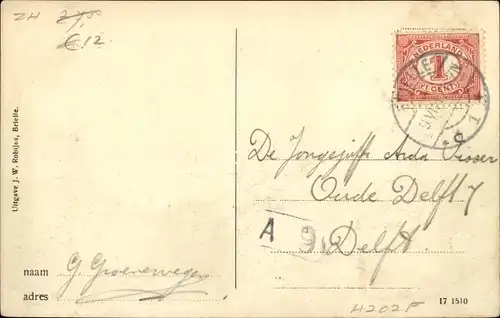 ZH 27,8
€12
NEDERLAND
1
CENT
De Jongejuffr Arda Visser
Oude Delft 7
Delft.
A
Uitgave J. W. Robijns, Brielle.
naam G. Groenewegen
adres
17 1510
H202F